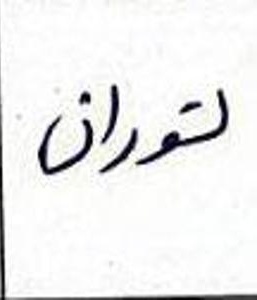 لتوران